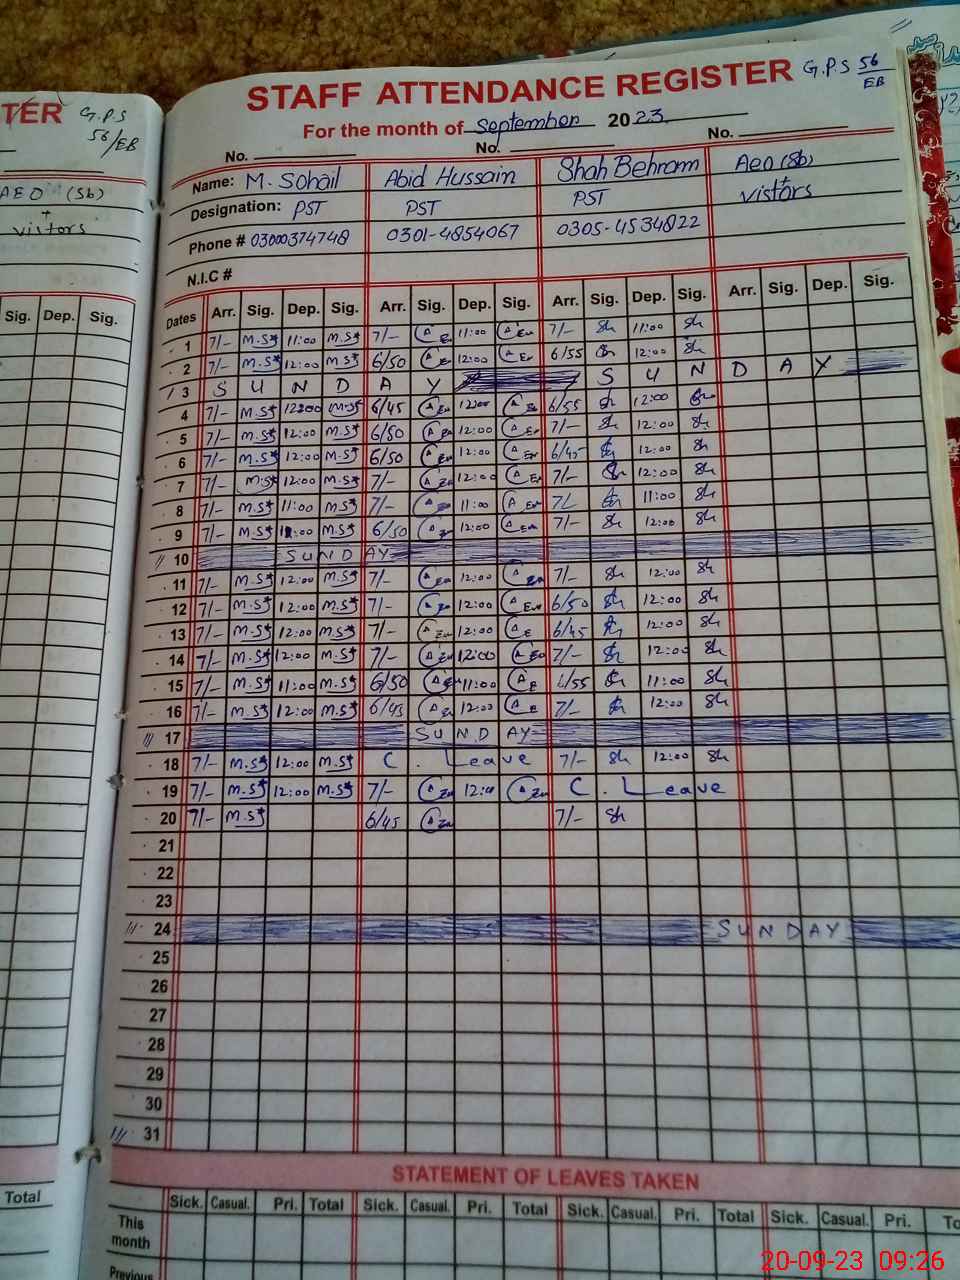 TER G.P.S
56/EB
AEO (Sb)
+
vistors
Sig. Dep. Sig.
Total
STAFF ATTENDANCE REGISTER G.P.S 56
EB
For the month of september 2023
No. No. No.
Name: M. Sohail Abid Hussain Shah Behram Aeo (Sb)
+
Designation: PST PST PST vistors
Phone # 03000374748 0301-4854067 0305-4534822
N.I.C #
Dates Arr. Sig. Dep. Sig. Arr. Sig. Dep. Sig. Arr. Sig. Dep. Sig. Arr. Sig. Dep. Sig.
1 7/- M.S 11:00 M.S 7/- 11:00 7/- Sh 11:00 Sh
2 7/- M.S 12:00 M.S 6/50 12:00 6/55 Sh 12:00 Sh
3 S U N D A Y S U N D A Y
4 7/- M.S 12:00 M.S 6/45 12:00 6/55 Sh 12:00
5 7/- M.S 12:00 M.S 6/50 12:00 7/- Sh 12:00 Sh
6 7/- M.S 12:00 M.S 6/50 12:00 6/45 Sh 12:00 Sh
7 7/- M.S 12:00 M.S 7/- 12:00 7/- Sh 12:00 Sh
8 7/- M.S 11:00 M.S 7/- 11:00 7/- Sh 11:00 Sh
9 7/- M.S 12:00 M.S 6/50 12:00 7/- Sh 12:00 Sh
10 SUNDAY
11 7/- M.S 12:00 M.S 7/- 12:00 7/- Sh 12:00 Sh
12 7/- M.S 12:00 M.S 7/- 12:00 6/50 Sh 12:00 Sh
13 7/- M.S 12:00 M.S 7/- 12:00 6/45 Sh 12:00 Sh
14 7/- M.S 12:00 M.S 7/- 12:00 7/- Sh 12:00 Sh
15 7/- M.S 11:00 M.S 6/50 11:00 6/55 Sh 11:00 Sh
16 7/- M.S 12:00 M.S 6/45 12:00 7/- Sh 12:00 Sh
17 SUNDAY
18 7/- M.S 12:00 M.S C. Leave 7/- Sh 12:00 Sh
19 7/- M.S 12:00 M.S 7/- 12:00 C. Leave
20 7/- M.S 6/45 7/- Sh
21
22
23
24 SUNDAY
25
26
27
28
29
30
31
STATEMENT OF LEAVES TAKEN
Sick. Casual. Pri. Total Sick. Casual. Pri. Total Sick. Casual. Pri. Total Sick. Casual. Pri. To
This
month
Previous
20-09-23 09:26